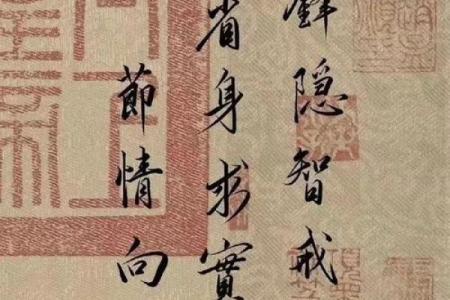 鋒隐智戒
省身求實
節情向